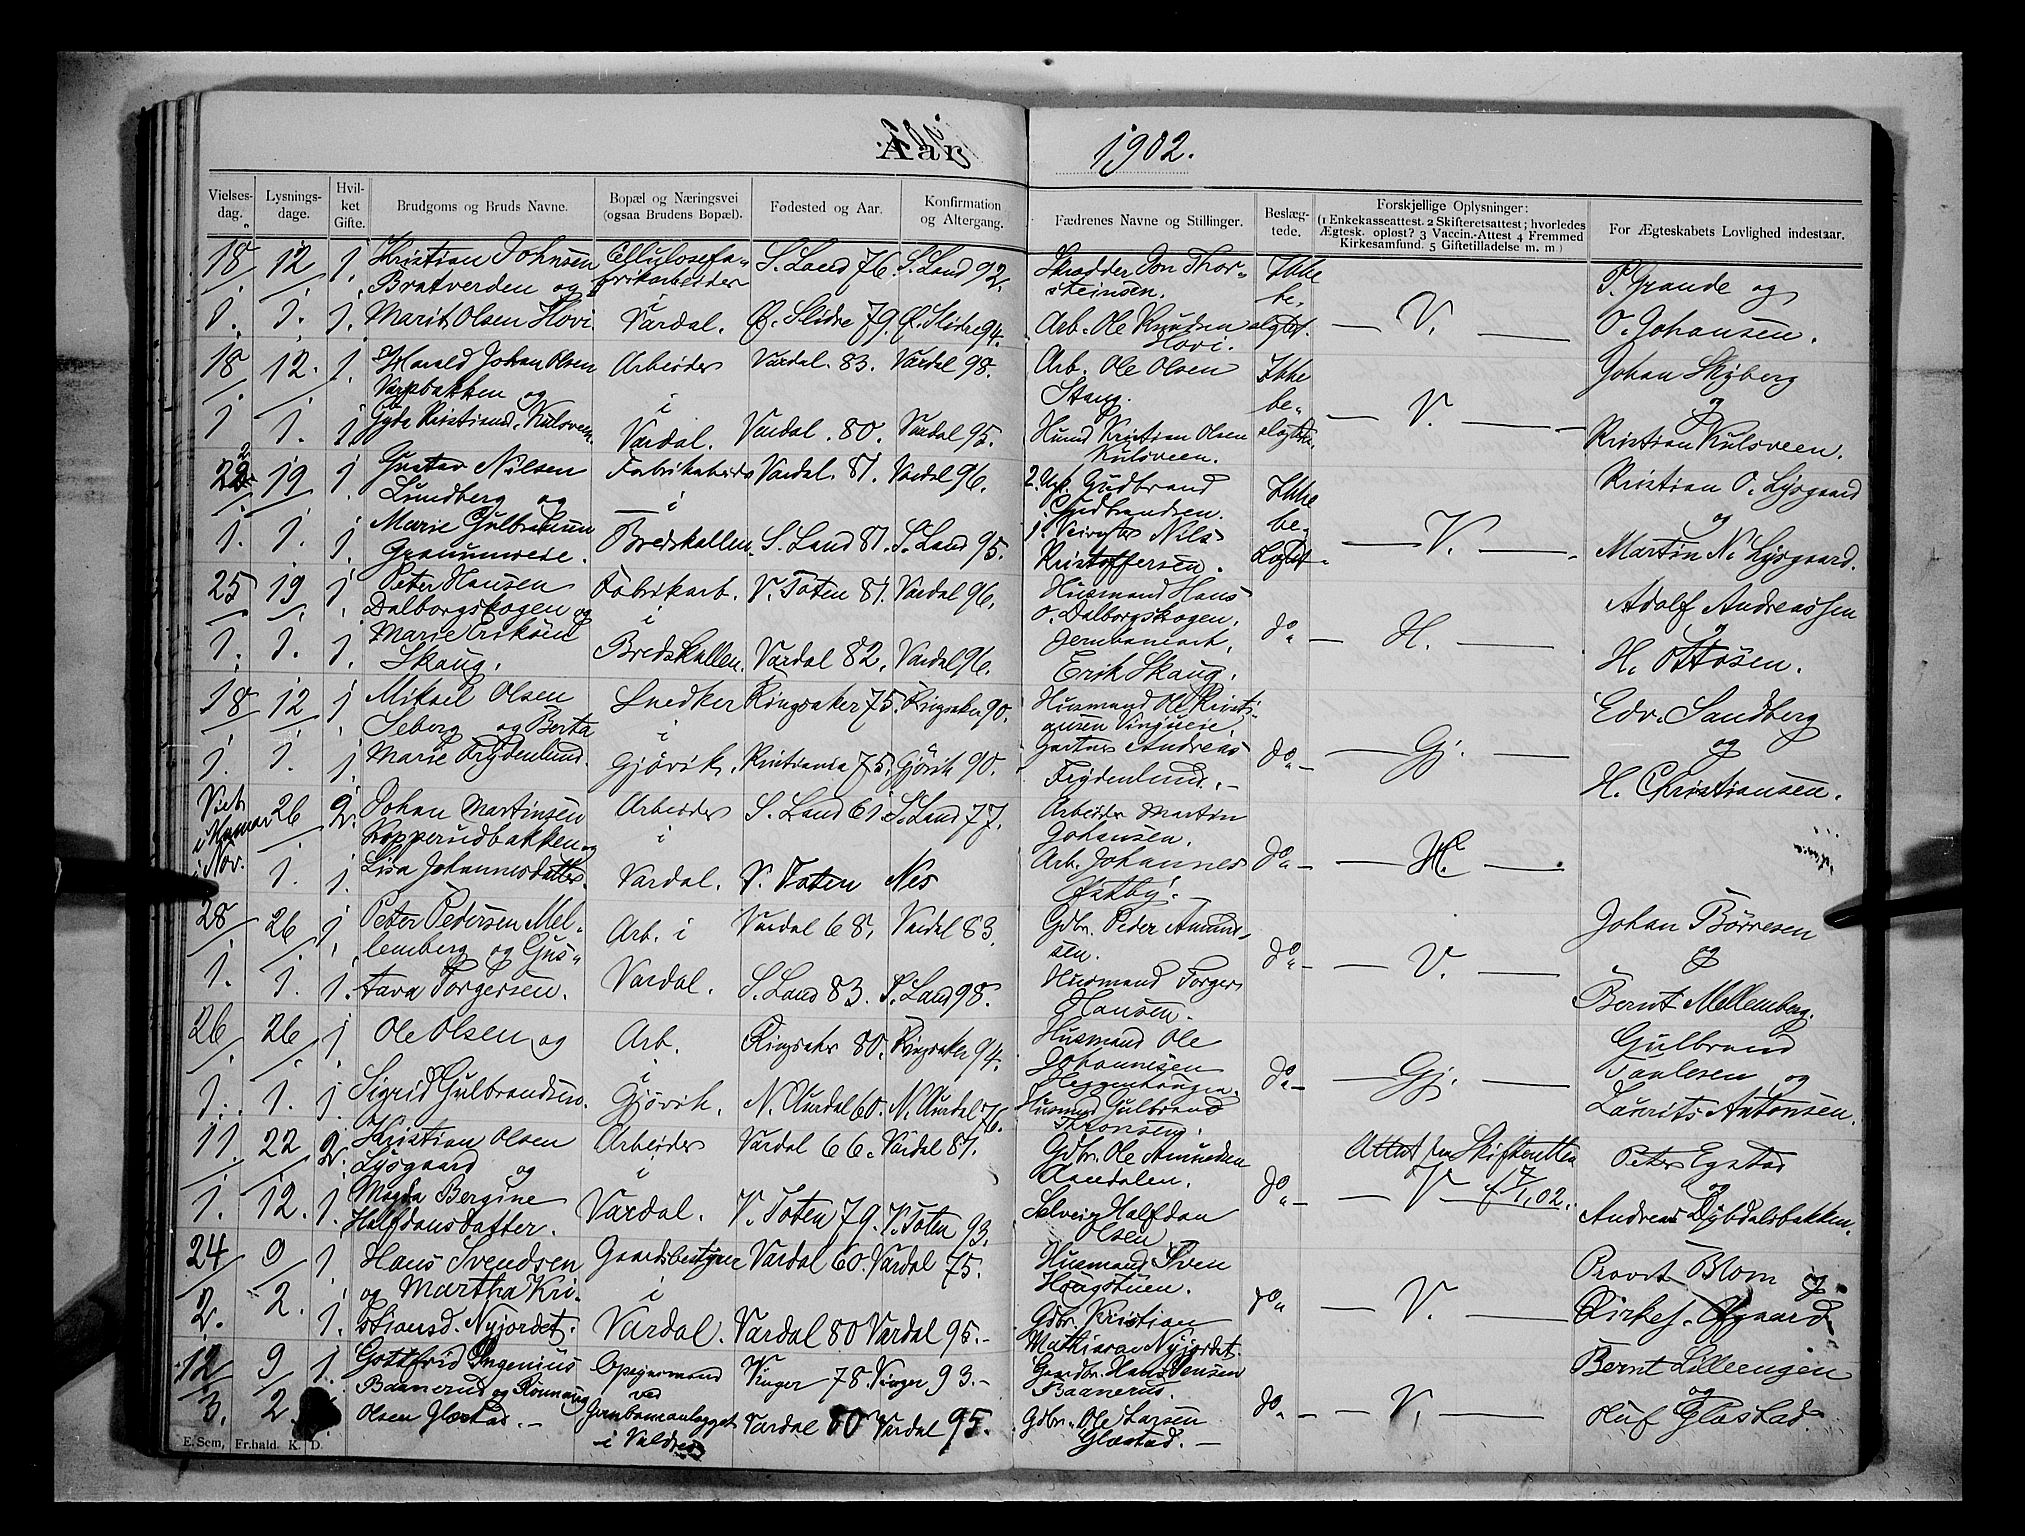 Aar 1902.
Vielses-dag.
Lysnings-dage.
Hvil-ket Gifte.
Brudgoms og Bruds Navne.
Bopæl og Næringsvei (ogsaa Brudens Bopæl).
Fødested og Aar.
Konfirmation og Altergang.
Fædrenes Navne og Stillinger.
Beslæg-tede.
Forskjellige Oplysninger:
(1 Enkekasseattest. 2 Skifteretsattest; hvorledes
Ægtesk. opløst? 3 Vaccin.-Attest 4 Fremmed
Kirkesamfund. 5 Giftetilladelse m. m)
For Ægteskabets Lovlighed indestaar.
18/ 12/ 1. Kristian Johnsen Cellulosefa- S. Land 76. S. Land 92. Skrædder Jon Thor- Ikke P. Grande og
Bratverden og brikarbeider steinsen. be-
1. 1. 1. Marit Olsen Hovi. i Vardal. Ø. Slidre 79. Ø. Slidre 94. Arb. Ole Knudsen Hovi. slgtet. — V. — O. Johansen.
18/ 12. 1. Harald Johan Olsen Arbeider Vardal. 83. Vardal 98. Arb. Ole Olsen Ikke Johan Skyberg
Varpbakken og i Stang. be- og
1. 1. 1 Gyda Kristiansd. Kulsveen. Vardal. Vardal. 80. Vardal 95. Husmd Kristian Olsen Kulsveen. slgtet. — V. — Kristian Kulsveen.
22/ 19/ 1. Gustav Nilsen Fabrikarbeider Vardal. 81. Vardal 96. 2. Gudbrand Ikke Kristian O. Lysgaard
Lundberg og i Gudbrandsen. be- og
1. 1. 1. Marie Gulbrandsen Bredskallen. S. Land 81. S. Land 95. 1. Nils — V. — Martin N. Lysgaard.
Kristoffersen.
25 19 1. Peter Hansen Fabrikarb. V. Toten 81. Vardal 96. Husmand Hans Adolf Andreassen
Dalborgskogen og i O. Dalborgskogen. do — H. — og
1. 1. 1. Marie Eriksen Bredskallen. Vardal 82. Vardal 96. Jernbanearb. H. Ottosen.
Skaug. Erik Skaug.
18 12 1 Mikael Olsen Snedker Ringsaker 75. Ringsaker 90. Husmand Ole Kristi- Edv. Sandberg
Seberg og Berta i ansen do — Gj. — og
1. 1. 1 Marie Frydenlund. Gjøvik. Kristiania 75. Gjøvik 90. Gartner Andreas H. Christiansen.
Frydenlund.
Viet i Hamar i Nov. 26 2. Johan Martinsen Arbeider S. Land 61. S. Land 77. Arbeider Martin
Kopperudbakken og i Johansen. do — H. —
1. 1. Lisa Johannesdatter. Vardal. V. Toten Nes Arb. Johannes
Østby.
28/ 26 1. Peter Pedersen Mel- Arb. i Vardal 68. Vardal 83. Gdbr. Peder Amund- Johan Børresen
lemberg og Gus- sen. do — V. — og
1. 1. 1. tava Torgersen. Vardal. S. Land 83. S. Land 98. Husmand Torger Bernt Mellemberg.
Hansen.
26 26 1 Ole Olsen og Arb. Ringsaker 80. Ringsaker 94. Husmand Ole Gulbrand
i Johannesen do — Gj. — Paulesen og
1. 1. 1. Sigrid Gulbrandsen. Gjøvik. N. Aurdal 60. N. Aurdal 76. Husmd Gulbrand Laurits Antonsen.
11. 22 2. Kristian Olsen Arbeider Vardal 66. Vardal 81. Gdbr. Ole Amundsen Attest fra Skifteretten Peter Egstad
Lysgaard og i do — V — 7/1.02. og
1. 12. 1. Magda Bergine Vardal. V. Toten 79. V. Toten 93. Halfdan Andreas Dybdalsbakken.
Halfdansdatter. Olsen
24 9 1. Hans Svendsen Gaardsbestyrer Vardal 60. Vardal 75. Husmand Sven Provst Blom og
og Martha Kri- i Haugstuen. do — V. —
2. 2. 1. stiansd. Nyjordet. Vardal. Vardal 80 Vardal 95. Gdbr. Kristian Kirkes. Aagaard
Mathiasen Nyjordet.
12 9 1. Gottfrid Ingenius Opsynsmand Vinger 78. Vinger 93. Gaardbr. Hans Jensen Bernt Lilleengen
Baanerud og Rønnaug ved Baanerud. do — V. — og
3. 2 Olsen Glæstad. Jernbaneanlægget Vardal 80 Vardal 95. Gdbr. Ole Larsen Oluf Glæstad.
i Valdres Glæstad.
E. Sem, Fr.hald. K. D.